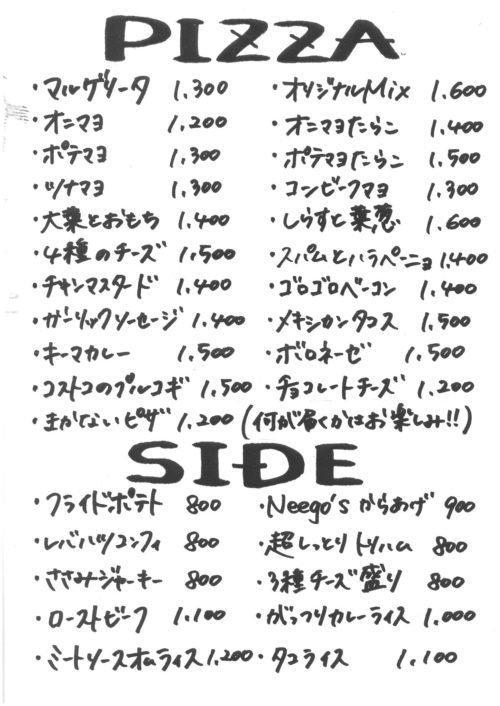 PIZZA
・マルゲリータ 1,300 ・オリジナルMix 1,600
・オニマヨ 1,200 ・オニマヨたらこ 1,400
・ポテマヨ 1,300 ・ポテマヨたらこ 1,500
・ツナマヨ 1,300 ・コンビーフマヨ 1,300
・大葉とおもち 1,400 ・しらすと葉葱 1,600
・4種のチーズ 1,500 ・スパムとハラペーニョ 1,400
・チキンマスタード 1,400 ・ゴロゴロベーコン 1,400
・ガーリックソーセージ 1,400 ・メキシカンタコス 1,500
・キーマカレー 1,500 ・ボロネーゼ 1,500
・コストコのプルコギ 1,500 ・チョコレートチーズ 1,200
・まかないピザ 1,200 (何が届くかはお楽しみ!!)
SIDE
・フライドポテト 800 ・Neego's からあげ 900
・レバハツコンフィ 800 ・超しっとりトリハム 800
・ささみジャーキー 800 ・3種チーズ盛り 800
・ローストビーフ 1,100 ・がっつりカレーライス 1,000
・ミートソースオムライス 1,200 ・タコライス 1,100